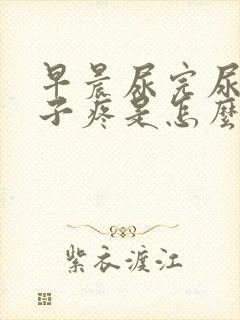 早晨尿完尿
子疼是怎麼
紫衣渡江